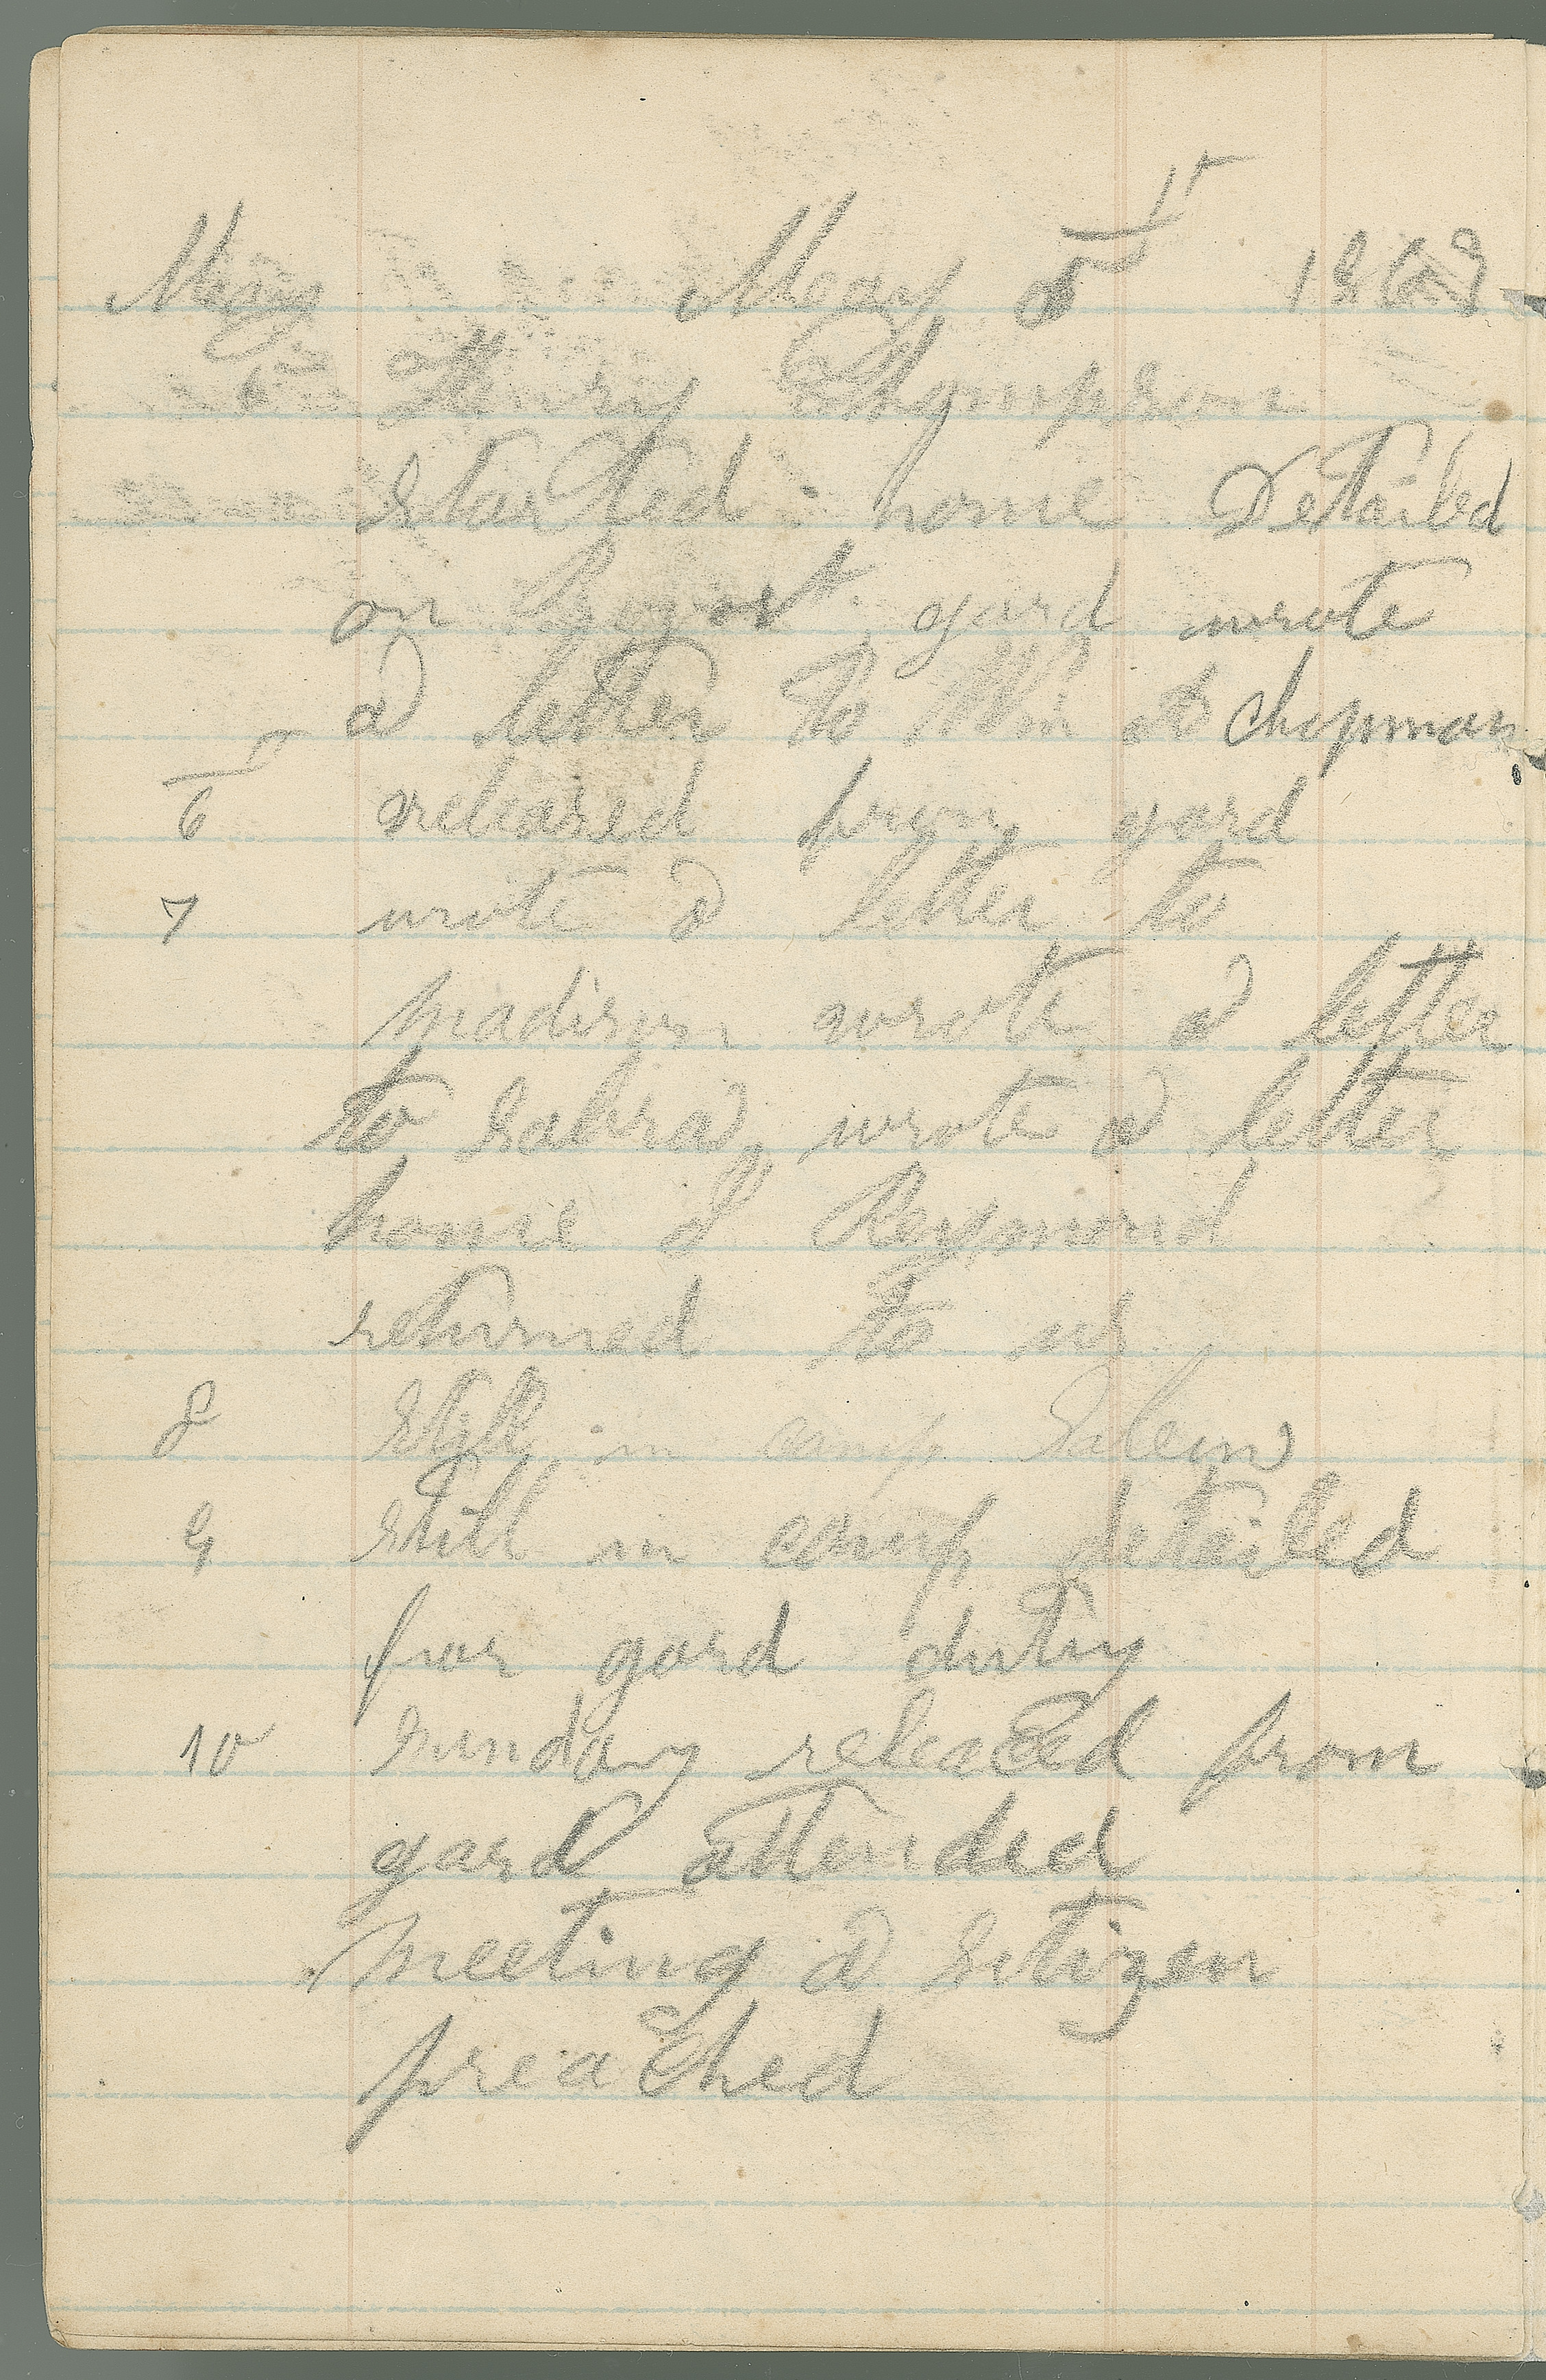 May May 5th 1863
Henry Thompson
started home Detailed
on gard wrote
a letter to Chipman
6th released from gard
7 wrote a letter to
madison wrote a letter
to Sabra wrote a letter
home Reymond
returned to us
8 Still in camp Salem
9 still in camp detailed
for gard duty
10 sunday released from
gard attended
meeting a sitizen
preached